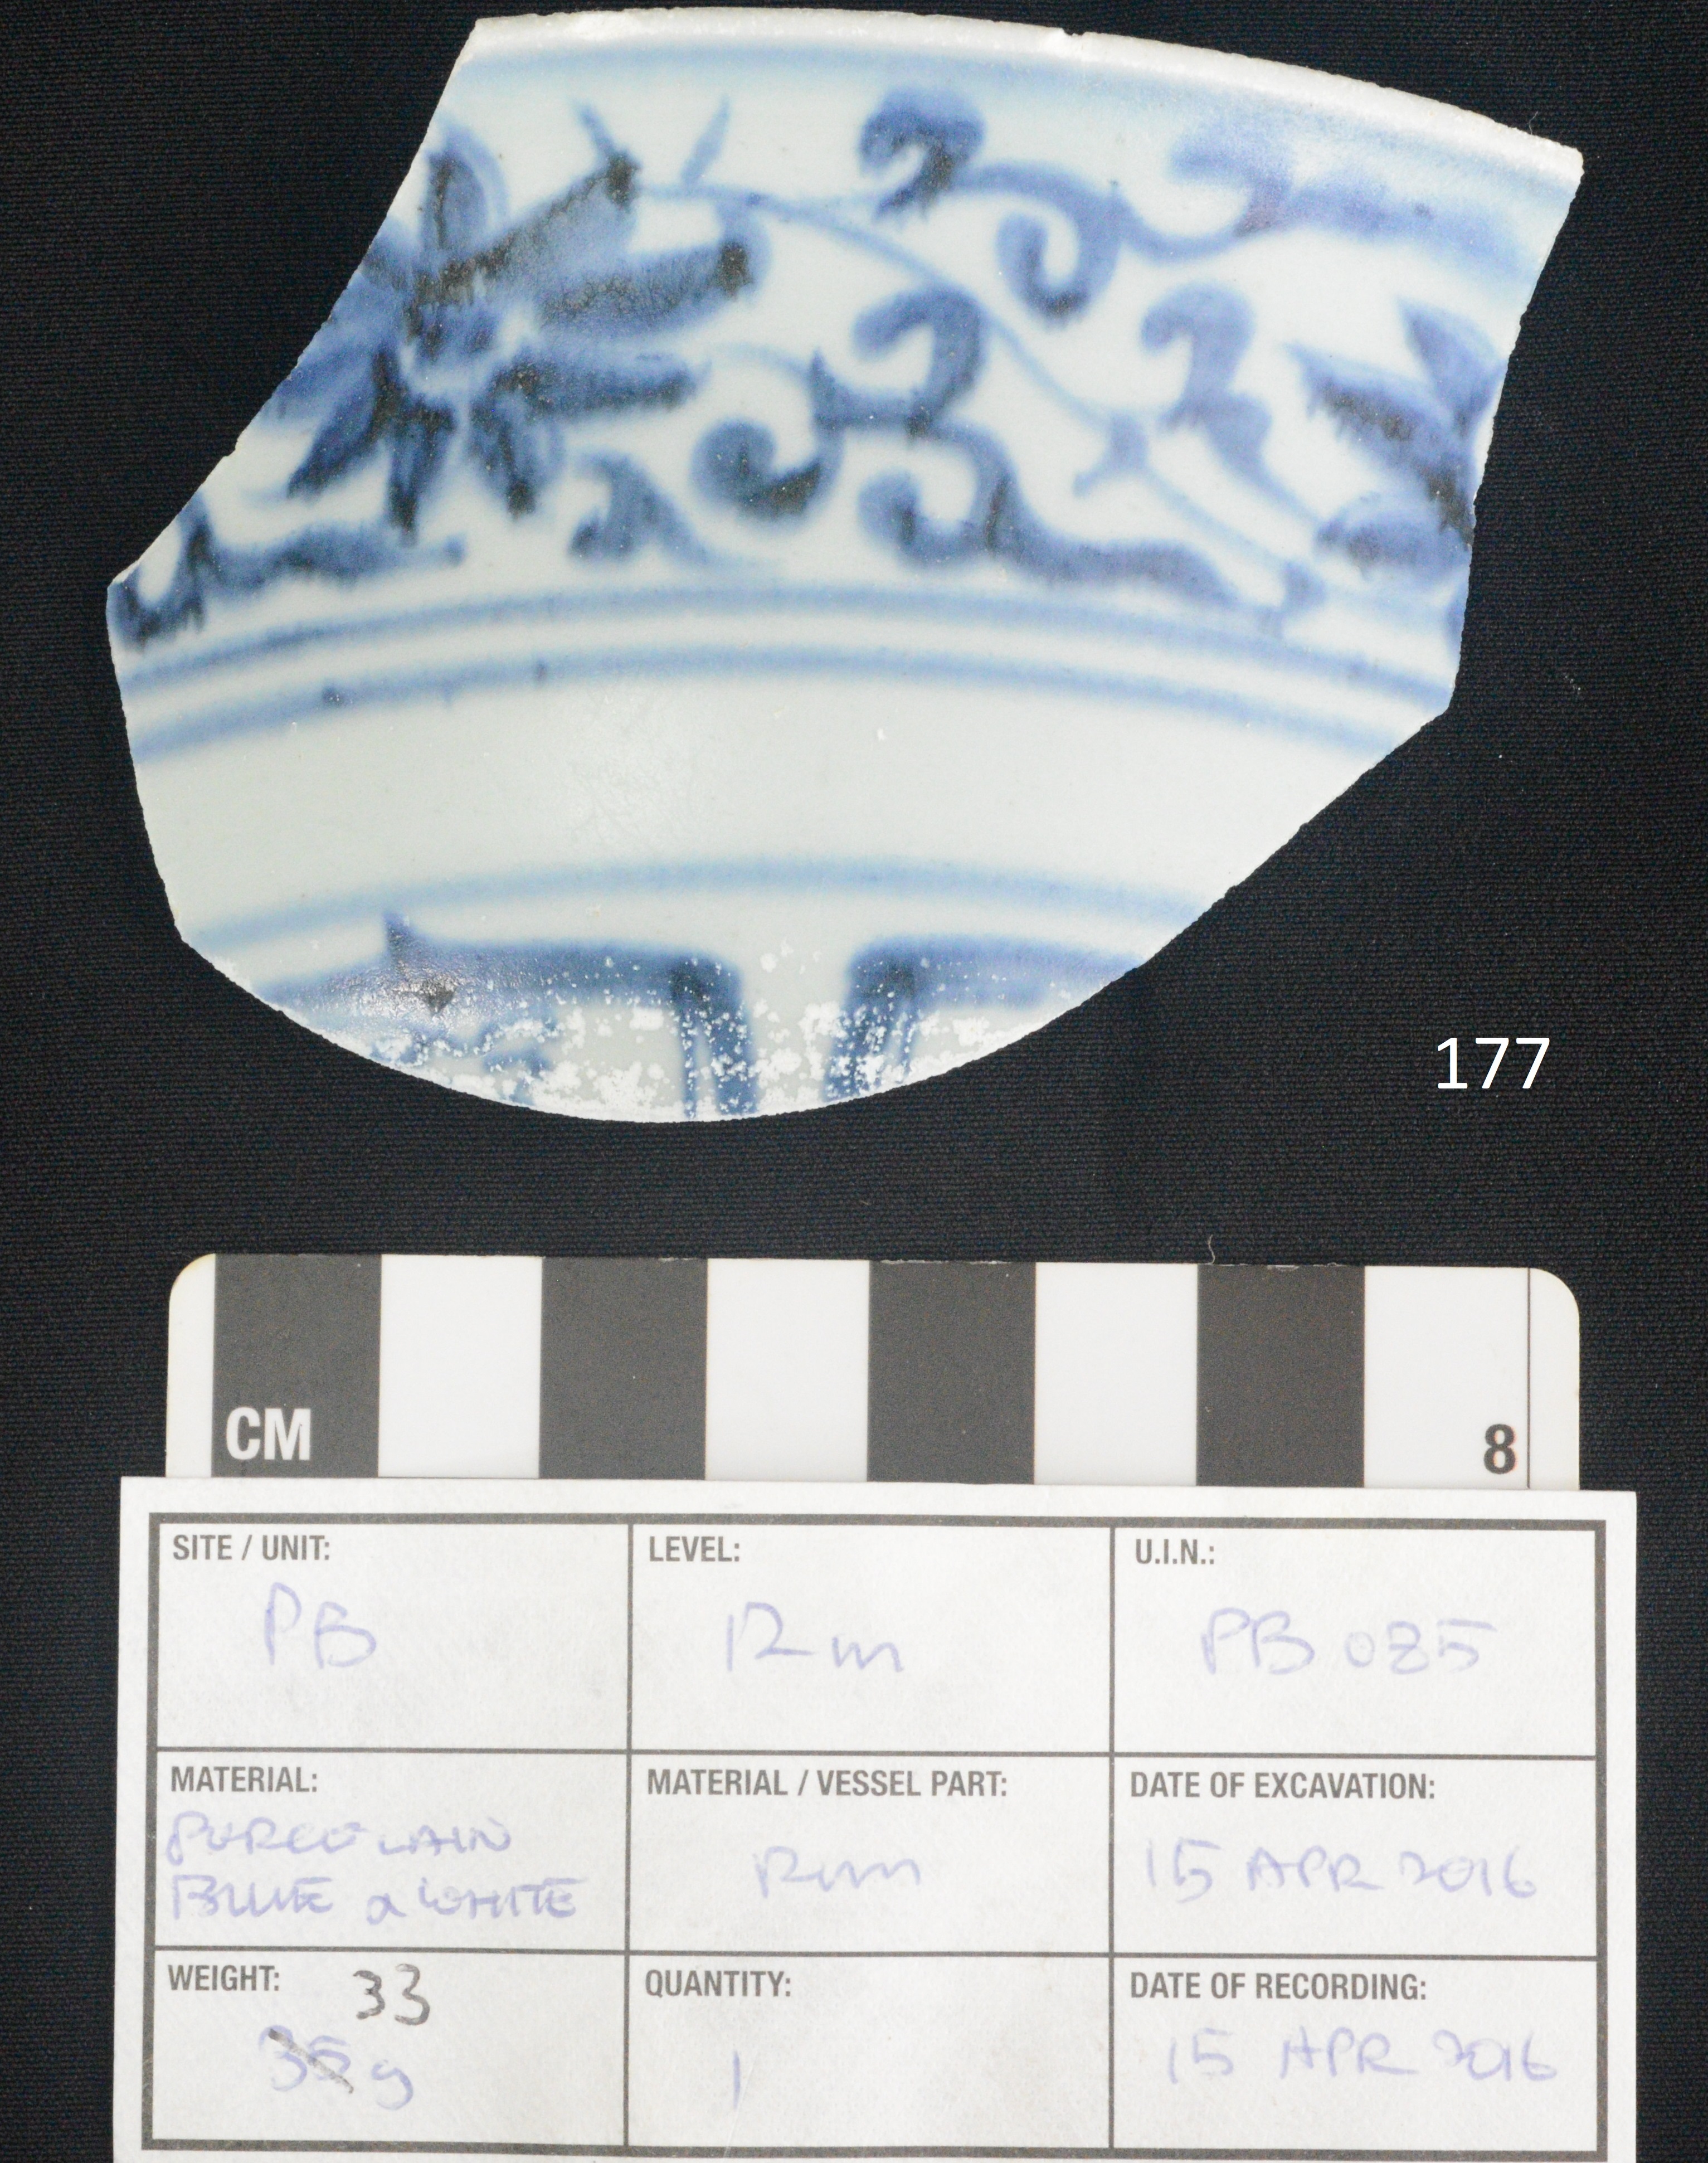 177
CM
8
SITE / UNIT:
PB
LEVEL:
Rm
U.I.N.:
PB 085
MATERIAL:
PORCELAIN
BLUE & WHITE
MATERIAL / VESSEL PART:
Rim
DATE OF EXCAVATION:
15 APR 2016
WEIGHT:
33
35 g
QUANTITY:
1
DATE OF RECORDING:
15 APR 2016